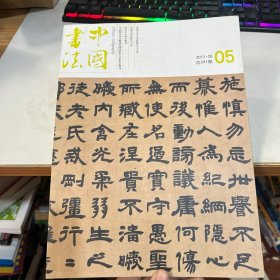 中國
書法
05
总241期
施慎勿忘世譽不足
慕惟仁為紀綱隱心
而後動謗議庸何傷
無使名過實守愚聖
所臧在涅貴不淄曖
曖內含光柔弱生之
徒老氏戒剛彊